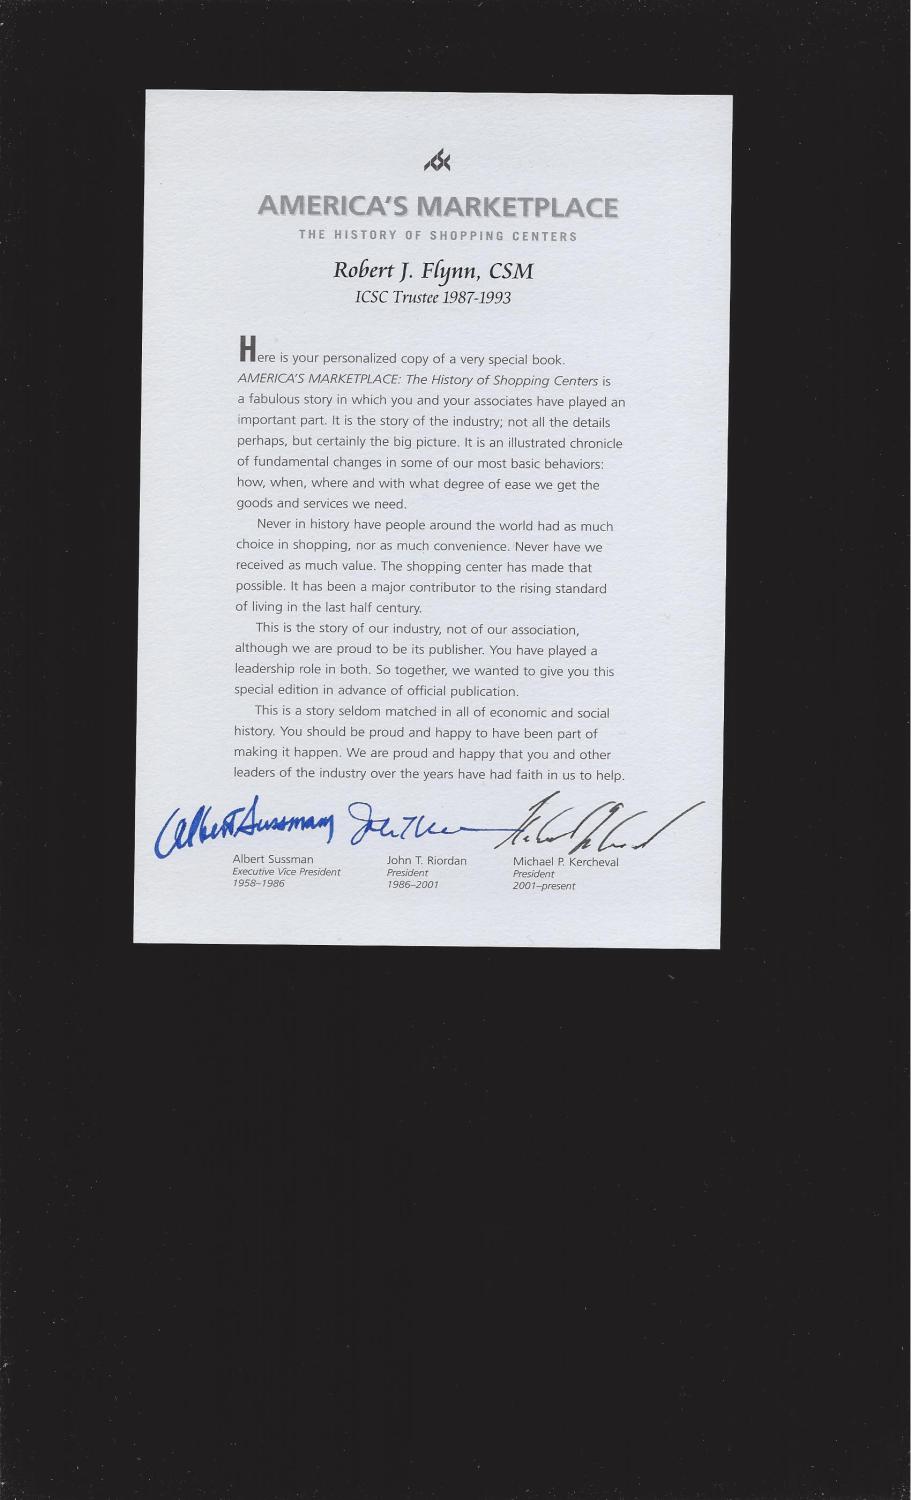 AMERICA'S MARKETPLACE
THE HISTORY OF SHOPPING CENTERS
Robert J. Flynn, CSM
ICSC Trustee 1987-1993
Here is your personalized copy of a very special book.
AMERICA'S MARKETPLACE: The History of Shopping Centers is
a fabulous story in which you and your associates have played an
important part. It is the story of the industry; not all the details
perhaps, but certainly the big picture. It is an illustrated chronicle
of fundamental changes in some of our most basic behaviors:
how, when, where and with what degree of ease we get the
goods and services we need.
Never in history have people around the world had as much
choice in shopping, nor as much convenience. Never have we
received as much value. The shopping center has made that
possible. It has been a major contributor to the rising standard
of living in the last half century.
This is the story of our industry, not of our association,
although we are proud to be its publisher. You have played a
leadership role in both. So together, we wanted to give you this
special edition in advance of official publication.
This is a story seldom matched in all of economic and social
history. You should be proud and happy to have been part of
making it happen. We are proud and happy that you and other
leaders of the industry over the years have had faith in us to help.
Albert Sussman
Albert Sussman John T. Riordan Michael P. Kercheval
Executive Vice President President President
1958–1986 1986–2001 2001–present